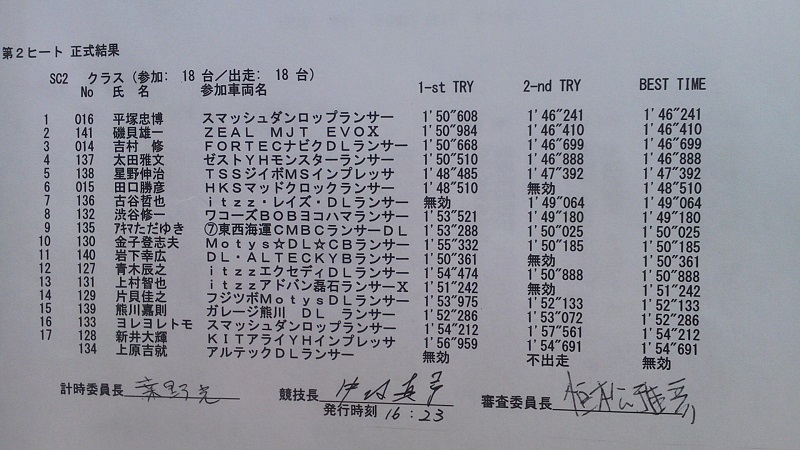 第2ヒート 正式結果
SC2 クラス (参加: 18 台/出走: 18 台)
No 氏 名 参加車両名 1-st TRY 2-nd TRY BEST TIME
1 016 平塚忠博 スマッシュダンロップランサー 1'50"608 1'46"241 1'46"241
2 141 磯貝雄一 ZEAL MJT EVOX 1'50"984 1'46"410 1'46"410
3 014 吉村 修 FORTECナビクDLランサー 1'50"668 1'46"699 1'46"699
4 137 太田雅文 ゼストYHモンスターランサー 1'50"510 1'46"888 1'46"888
5 138 星野伸治 TSSジイボMSインプレッサ 1'48"485 1'47"392 1'47"392
6 015 田口勝彦 HKSマッドクロックランサー 1'48"510 無効 1'48"510
7 136 古谷哲也 itzz・レイズ・DLランサー 無効 1'49"064 1'49"064
8 132 渋谷修一 ワコーズBOBヨコハマランサー 1'53"521 1'49"180 1'49"180
9 135 ｱｷﾏただゆき ⑦東西海運CMBCランサーDL 1'53"288 1'50"025 1'50"025
10 130 金子登志夫 Motys☆DL☆CBランサー 1'55"332 1'50"185 1'50"185
11 140 岩下幸広 DL・ALTECKYBランサー 1'50"361 無効 1'50"361
12 127 青木辰之 itzzエクセディDLランサー 1'54"474 1'50"888 1'50"888
13 131 上村智也 itzzアドバン磊石ランサーX 1'51"242 無効 1'51"242
14 129 片貝佳之 フジツボMotysDLランサー 1'53"975 1'52"133 1'52"133
15 139 熊川嘉則 ガレージ熊川 DL ランサー 1'52"286 1'53"072 1'52"286
16 133 ヨレヨレトモ スマッシュダンロップランサー 1'54"212 1'57"561 1'54"212
17 128 新井大輝 KITアライYHインプレッサ 1'56"959 1'54"691 1'54"691
134 上原吉就 アルテックDLランサー 無効 不出走 無効
計時委員長 競技長 審査委員長
発行時刻 16:23